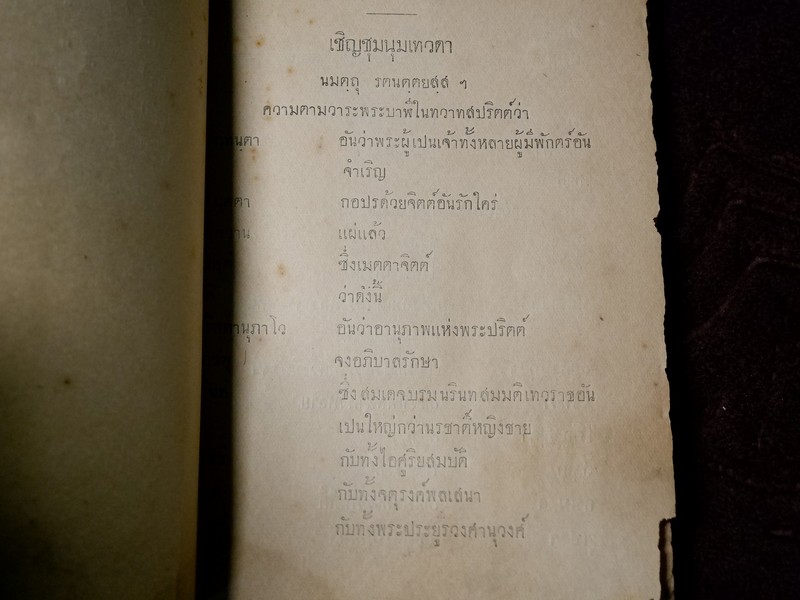 เชิญชุมนุมเทวดา
นมตฺถุ รตนตฺตยสฺส ฯ
ความตามวาระพระบาฬีในทวาทสปริตต์ว่า
อันว่าพระผู้เปนเจ้าทั้งหลายผู้มีพักตร์อัน
จำเริญ
กอปรด้วยจิตต์อันรักใคร่
แผ่แล้ว
ซึ่งเมตตาจิตต์
ว่าดังนี้
านุภาโว อันว่าอานุภาพแห่งพระปริตต์
จงอภิบาลรักษา
ซึ่งสมเดจบรมนรินทสมมติเทวราชอัน
เปนใหญ่กว่านรชาติ์หญิงชาย
กับทั้งไอศูริยสมบัติ
กับทั้งจตุรงค์พลเสนา
กับทั้งพระประยูรวงศานุวงศ์